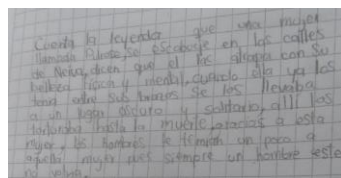 Cuenta la leyenda que una mujer
llamada se en las calles
de Neiva, dicen que el los con su
belleza fisica y mental, cuando ella ya los
tenia entre sus brazos se los llevaba
a un lugar oscuro y solitario, alli los
torturaba hasta la muerte, gracias a esta
mujer, los hombres le temian un poco a
aquella mujer pues siempre un hombre este
no volvia.